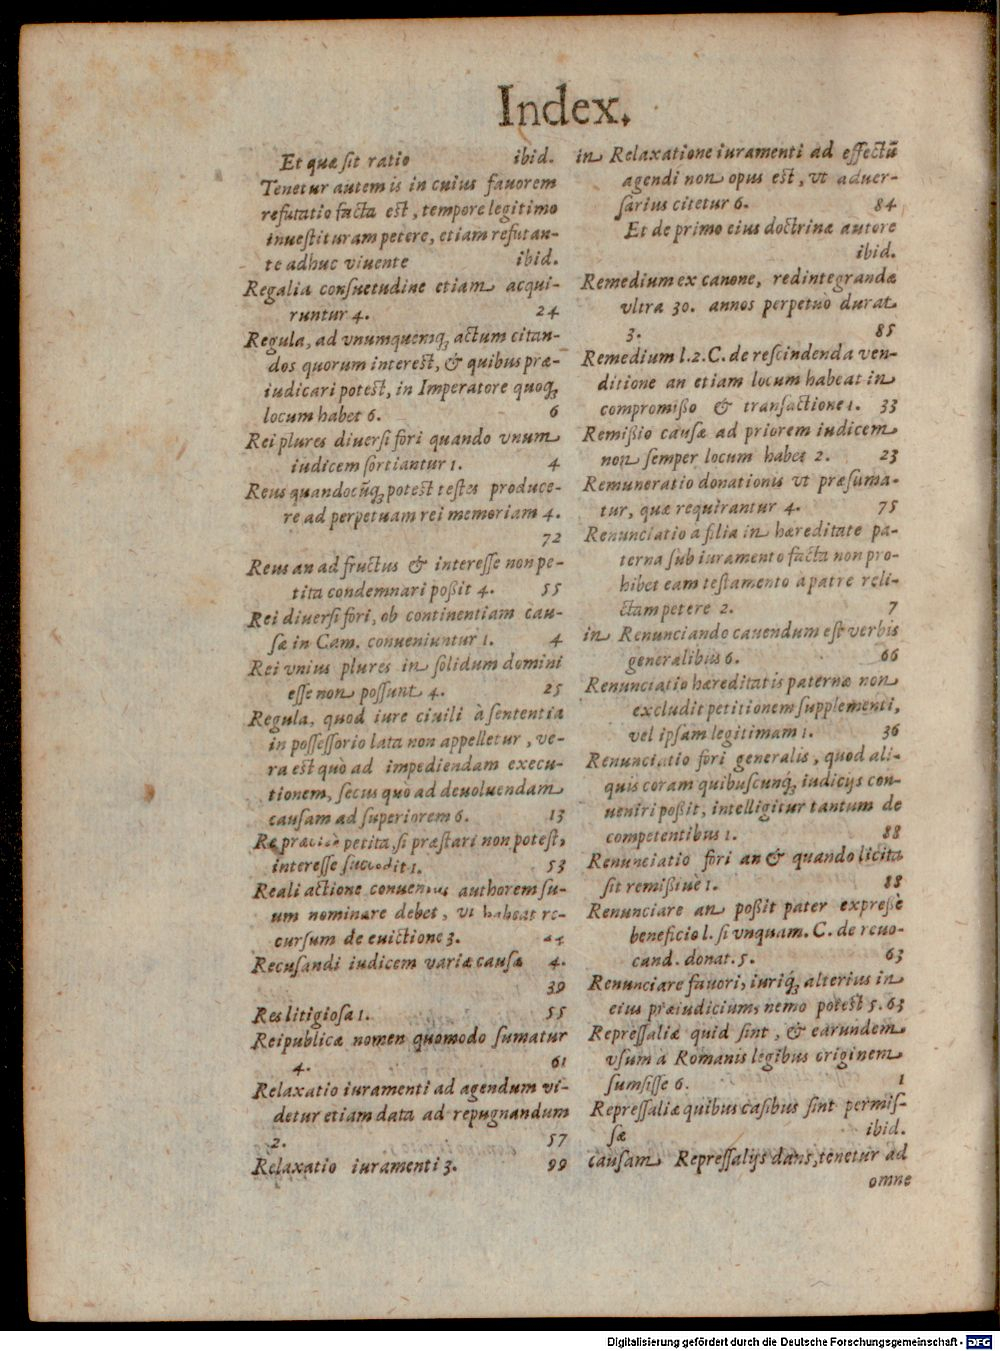 Index.
Et quæ sit ratio ibid.
Tenetur autem is in cuius fauorem
refutatio facta est, tempore legitimo
inuestituram petere, etiam refutan-
te adhuc viuente ibid.
Regalia consuetudine etiam acqui-
runtur 4. 24
Regula, ad vnumquemq; actum citan-
dos quorum interest, & quibus præ-
iudicari potest, in Imperatore quoq;
locum habet 6. 6
Rei plures diuersi fori quando vnum
iudicem sortiantur 1. 4
Reus quandocũq; potest testes produce-
re ad perpetuam rei memoriam 4.
72
Reus an ad fructus & interesse non pe-
tita condemnari poßit 4. 55
Rei diuersi fori, ob continentiam cau-
sæ in Cam. conueniuntur 1. 4
Rei vnius plures in solidum domini
esse non possunt 4. 25
Regula, quod iure ciuili à sententia
in possessorio lata non appelletur, ve-
ra est quò ad impediendam execu-
tionem, secus quò ad deuoluendam
causam ad superiorem 6. 13
Re præcisè petita, si præstari non potest,
interesse succedit 1. 53
Reali actione conuentus authorem su-
um nominare debet, vt habeat re-
cursum de euictione 3.
Recusandi iudicem variæ causæ 4.
39
Res litigiosa 1. 55
Reipublicæ nomen quomodo sumatur
4. 61
Relaxatio iuramenti ad agendum vi-
detur etiam data ad repugnandum
2. 57
Relaxatio iuramenti 3. 99
in Relaxatione iuramenti ad effectũ
agendi non opus est, vt aduer-
sarius citetur 6. 84
Et de primo eius doctrinæ autore
ibid.
Remedium ex canone, redintegrandæ
vltra 30. annos perpetuò durat
3. 85
Remedium l. 2. C. de rescindenda ven-
ditione an etiam locum habeat in
compromißo & transactione 1. 33
Remißio causæ ad priorem iudicem
non semper locum habet 2. 23
Remuneratio donationis vt præsuma-
tur, quæ requirantur 4. 75
Renunciatio a filia in hæreditate pa-
terna sub iuramento facta non pro-
hibet eam testamento à patre reli-
ctam petere 2. 7
in Renunciando cauendum est verbis
generalibus 6. 66
Renunciatio hæreditatis paternæ non
excludit petitionem supplementi,
vel ipsam legitimam 1. 36
Renunciatio fori generalis, quod ali-
quis coram quibuscunq́; iudicijs con-
ueniri poßit, intelligitur tantum de
competentibus 1. 88
Renunciatio fori an & quando licita
sit remißiuè 1. 88
Renunciare an poßit pater expreßè
beneficio l. si vnquam. C. de reuo-
cand. donat. 5. 63
Renunciare fauori, iuriq́; alterius in
eius præiudicium, nemo potest 5. 63
Repressaliæ quid sint, & earundem
vsum à Romanis legibus originem
sumsisse 6. 1
Repressaliæ quibus casibus sint permis-
sæ ibid.
causam Repressalijs dans, tenetur ad
omne
Digitalisierung gefördert durch die Deutsche Forschungsgemeinschaft - DFG